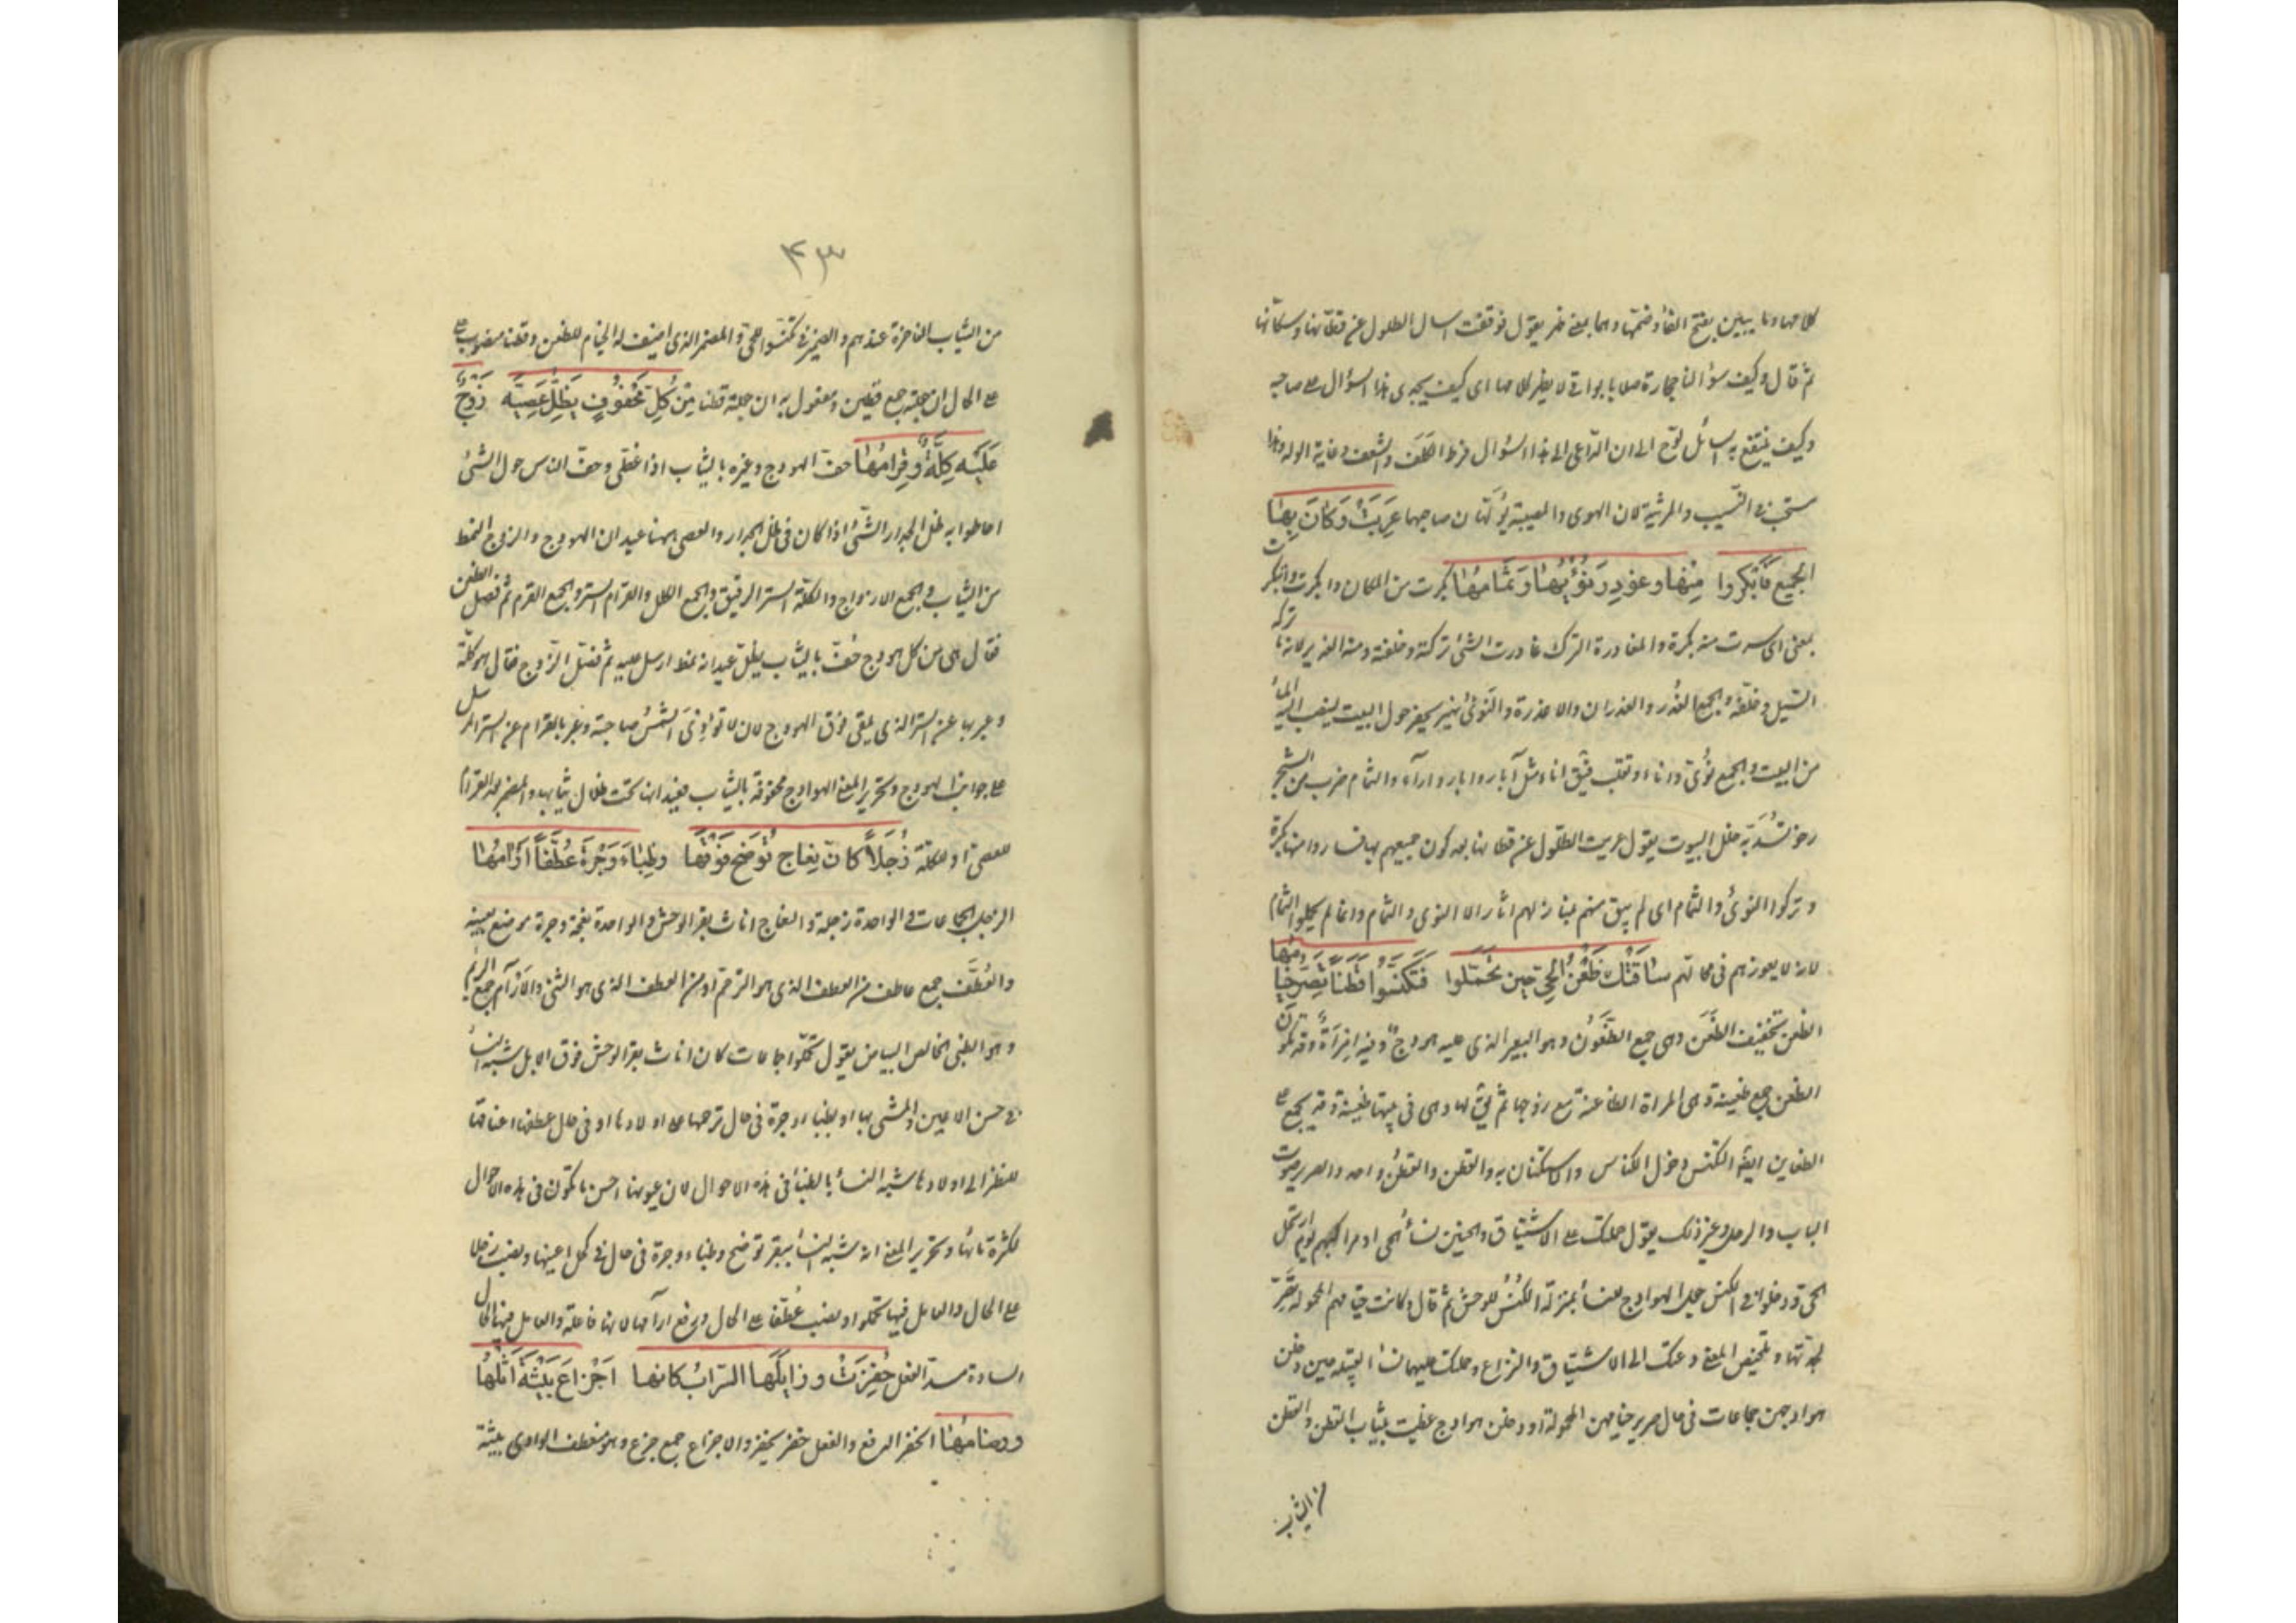 كلامها وما يبين بفتح الفاء وضمها وهما بمعنى ظهر يقول فوقفت اسال الطلول عن قطانها وسكانها
ثم قال وكيف سؤالنا حجارة صلابا بواقى لا يظهر كلامها اى كيف يجدى هذا السؤال على صاحبه
وكيف ينتفع به السائل لوح الى ان الداعى الى هذا السؤال فرط الكلف والشغف وغاية الوله وهذا
مستحب فى النسيب والمرثية لان الهوى والمصيبة يولهان صاحبهما عَرِيَتْ وَكَانَ بِهَا
الجميع فَابْكَروا مِنْهَا وغودِرَ نُؤْيُهَا وَثُمَامُهَا بكرت من المكان وابكرت وابتكرت
بمعنى اى سرت منه بكرة والمغادرة الترك غادرت الشئ تركته وخلفته ومنه الغدير لانه ما تركه
السيل وخلفه والجمع الغُدُر والغدران والاغدرة والنُؤى نهير يحفر حول البيت لينصب اليه الماء
من البيت والجمع نُؤى وانآء وتقلب فيق اناء مثل آبار وابار وارآء والثمام ضرب من الشجر
رخو تسد به خلل البيوت يقول عريت الطلول عن قطانها بعد كون جميعهم بها فساروا منها بكرة
وتركوا النؤى والثمام اى لم يبق منهم بمنازلهم اثار الا النوى والثمام وانما لم يحملوا الثمام
لانه لا يعوزهم فى محالهم شَاقَتْكَ ظُعْنُ الحَىِّ حِينَ تَحَمَّلوا فَتَكَنَّسُوا قُطُنًا تَصِرُّ خِيَامُهَا
الظعن تخفيف الظُعُن وهى جمع الظَعُون وهو البعير الذى عليه هودج وفيه امرَأَة وقد تكون
الظعن جمع ظعينة وهى المراة الظاعنة مع زوجها ثم يق لها وهى فى بيتها ظعينة وقد يجمع على
الظعاين ايضا التكنس دخول الكناس والاستكنان به والقطن والقطُن واحد والصرير صوت
الباب والرحل وغير ذلك يقول حملتك على الاشتياق والحنين نساء الحى او مراكبهم يوم ارتحل
الحى ودخلوا فى الكنس جعل الهوادج للنساء بمنزلة الكُنُس للوحش ثم قال وكانت خيامهم المحمولة تَصِرّ
لجدتها وتلخيص المعنى دعتك الى الاشتياق والنزاع وحملتك عليهما نساء القبيلة حين دخلن
هوادجهن جماعات فى حال صرير خيامهن المحمولة او دخلن هوادج غطيت بثياب القطن والقطن
من الثياب
٤٣
من الثياب الفاخرة عندهم والضمير فى تكنسوا للحى والمضمر الذى اضيف له الخيام للظعن وقطنا منصوب على
على الحال ان جعلته جمع قطين ومفعول به ان جعلته قطنا مِنْ كُلِّ مَحْفُوفٍ يُظِلُّ عِصِيَّهُ زَوْجٌ
عَلَيْهِ كِلَّةٌ وَقِرَامُهَا حف الهودج وغيره بالثياب اذا غطى وحف الناس حول الشئ
احاطوا به ظل الجدار الشئ اذا كان فى ظل الجدار والعصى ههنا عيدان الهودج والزوج النمط
من الثياب والجمع الازواج والكلة الستر الرقيق والجمع الكلل والقرام الستر والجمع القرم ثم فصل الظعن
فقال هى من كل هودج حُفّ بالثياب يظل عيدانه نمط ارسل عليه ثم فصل الزوج فقال هو كلة
وعبر بها عن الستر الذى يلقى فوق الهودج لان لا تؤذى الشمس صاحبته وعبر بالقرام عن الستر المرسل
على جوانب الهودج وتحرير المعنى الهوادج محفوفة بالثياب فعيدانها تحت ظلال ثيابها والمضمر بعد القرام
للعصى او للكلة زُجَلاً كانّ نِعَاج تُوضِح فَوْقَهَا وظِبَاءَ وَجْرَةَ عُطَّفاً ارْآمُهَا
الزجل الجماعات والواحدة زجلة والنعاج اناث بقر الوحش والواحدة نعجة وجرة موضع بعينه
والعُطَّف جمع عاطف من العطف الذى هو الترحم او من العطف الذى هو الثنى والارآم جمع الريم
وهو الظبى الخالص البياض يقول تحملوا جماعات كان اناث بقر الوحش فوق الابل شبه النساء
فى حسن الاعين والمشى بها او بظباء وجرة فى حال ترحمها على اولادها او فى حال عطفها اعناقها
للنظر الى اولادها شبه النساء بالظباء فى هذه الاحوال لان عيونها احسن ما تكون فى هذه الاحوال
لكثرة مائها وتحرير المعنى انه شبه النساء ببقر توضح وظباء وجرة فى حال فى كحل اعينها ونصب زجلا
على الحال والعامل فيها تحملوا ونصب عُطَّفا على الحال ورفع ارآمها لانها فاعلة والعامل فيها الحال
السادة مسد الفعل حُفِزَتْ وزايَلَهَا السَرَابُ كانها اجْزَاعُ بِيْشَةَ اَثْلُهَا
وَرِضامُهَا الحفز الدفع والفعل حفز يحفز والاجزاع جمع جزع وهو منعطف الوادى بيشة